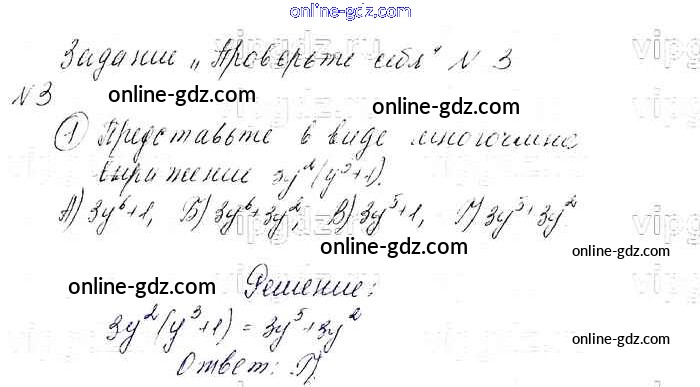 online-gdz.com
Задание „Проверьте себя" N 3
N 3 online-gdz.com
1 Представьте в виде многочлена
выражение 3y²(y³+1).
А) 3y⁶+1, Б) 3y⁶+3y², В) 3y⁵+1, Г) 3y⁵+3y²
online-gdz.com online-gdz.com
online-gdz.com Решение:
3y²(y³+1) = 3y⁵+3y² online-gdz.com
Ответ: Г).